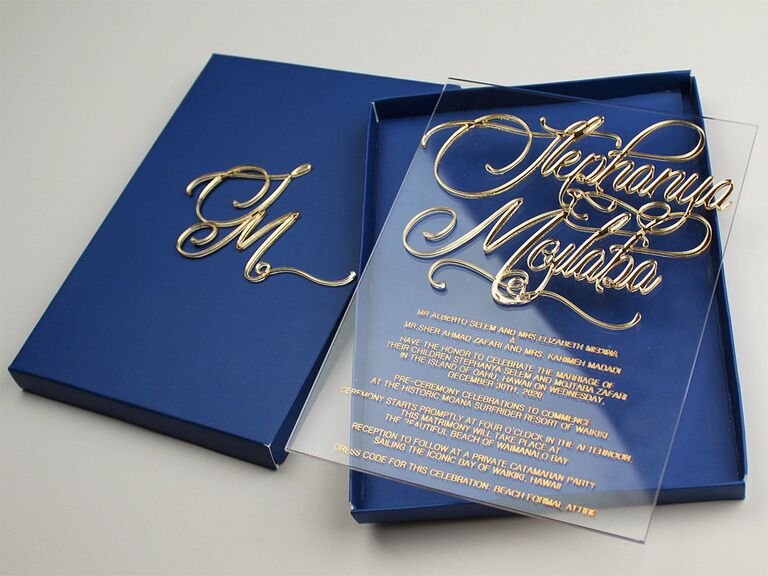 S
M
Stephanya
&
Mojtaba
MR.ALBERTO SELEM AND MRS.ELIZABETH MEDINA
&
MR.SHER AHMAD ZAFARI AND MRS. KARIMEH MADADI
HAVE THE HONOR TO CELEBRATE THE MARRIAGE OF
THEIR CHILDREN STEPHANYA SELEM AND MOJTABA ZAFARI
IN THE ISLAND OF OAHU, HAWAII ON WEDNESDAY,
DECEMBER 30TH, 2020
PRE-CEREMONY CELEBRATIONS TO COMMENCE
AT THE HISTORIC MOANA SURFRIDER RESORT OF WAIKIKI
CEREMONY STARTS PROMPTLY AT FOUR O'CLOCK IN THE AFTERNOON.
THIS MATRIMONY WILL TAKE PLACE AT
THE BEAUTIFUL BEACH OF WAIMANALO BAY
RECEPTION TO FOLLOW AT A PRIVATE CATAMARAN PARTY
SAILING THE ICONIC BAY OF WAIKIKI, HAWAII
DRESS CODE FOR THIS CELEBRATION: BEACH FORMAL ATTIRE